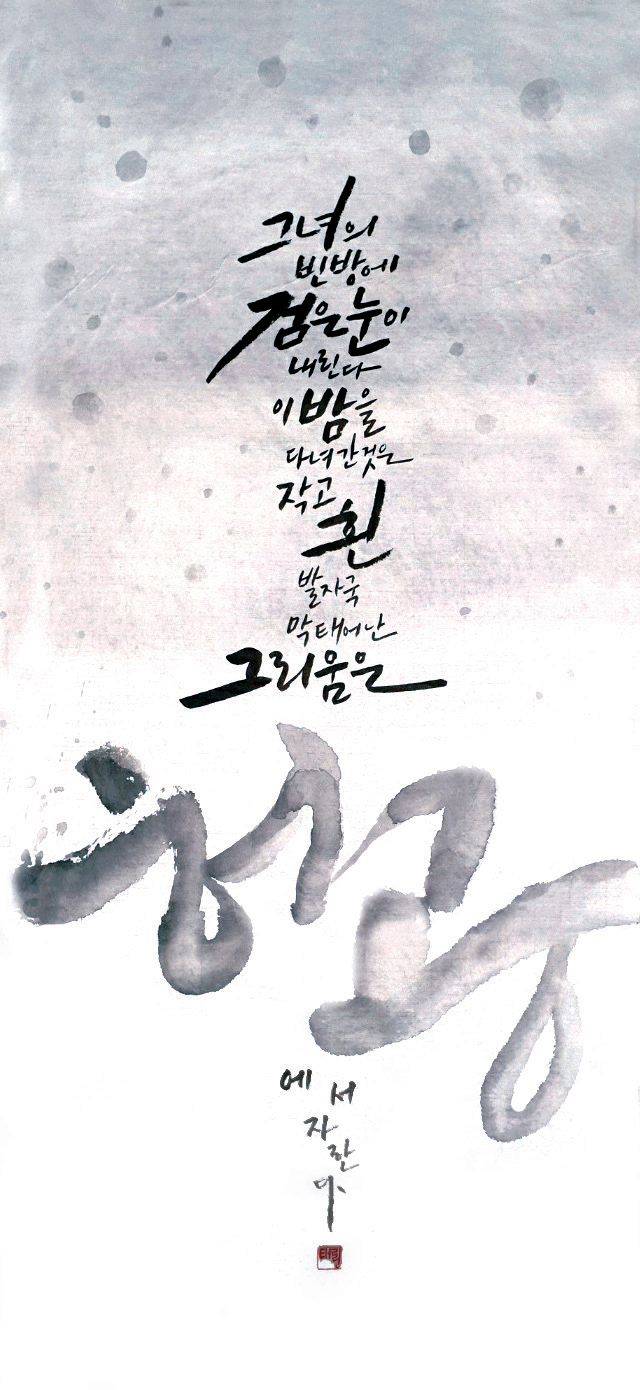 그녀의
빈방에
검은눈이
내린다
이밤을
다녀간것은
작고
흰
발자국
막태어난
그리움은
허공
에서
자란
다